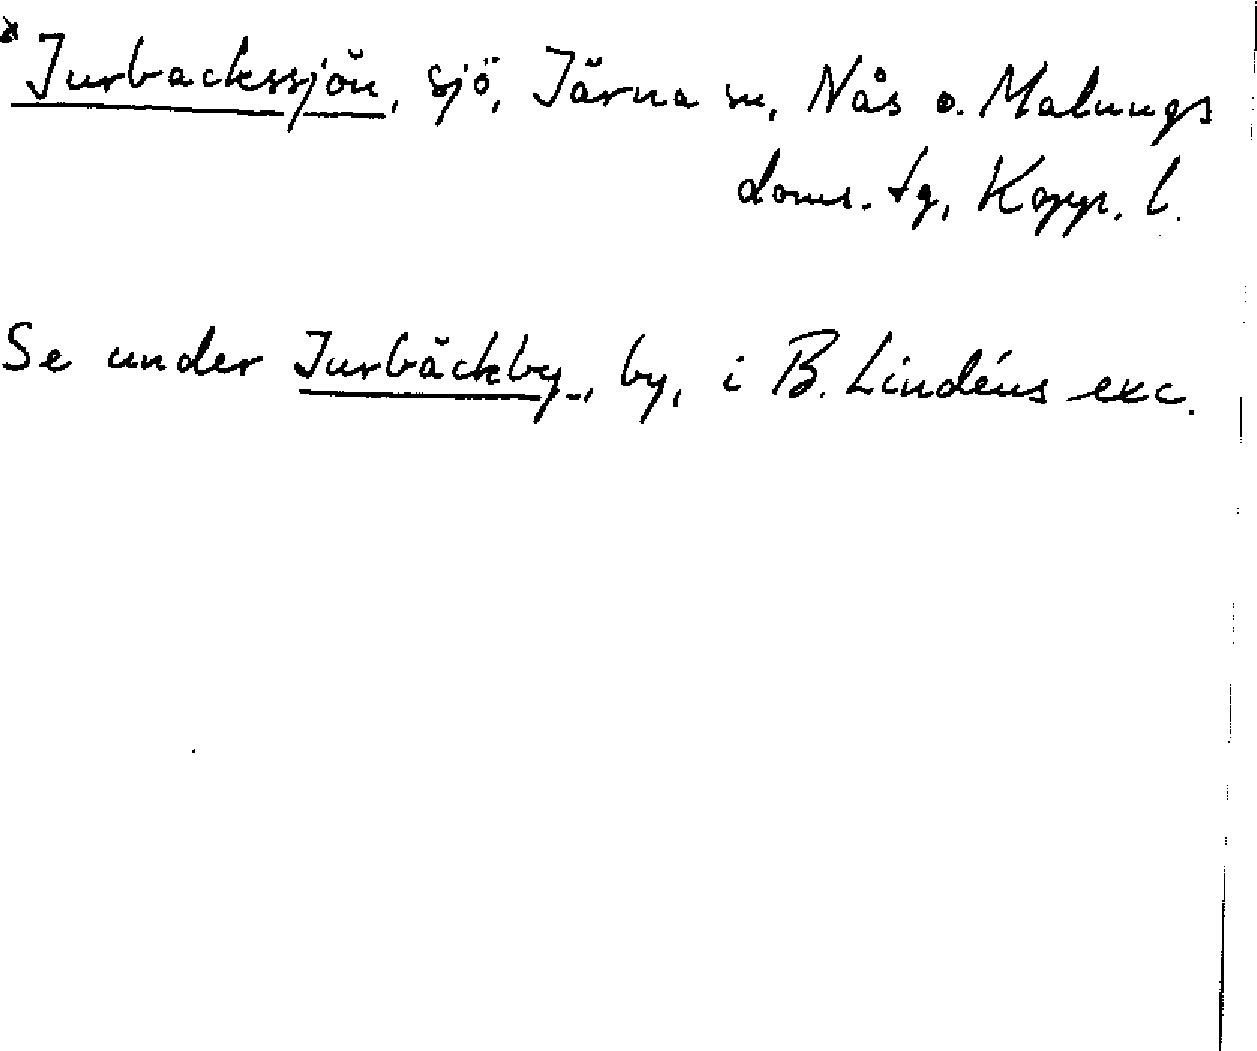 *Jurbackssjön, sjö, Järna sn, Nås o. Malungs
doms. tg, Kopp. l.
Se under Jurbäckby, by, i B. Lindéns exc.